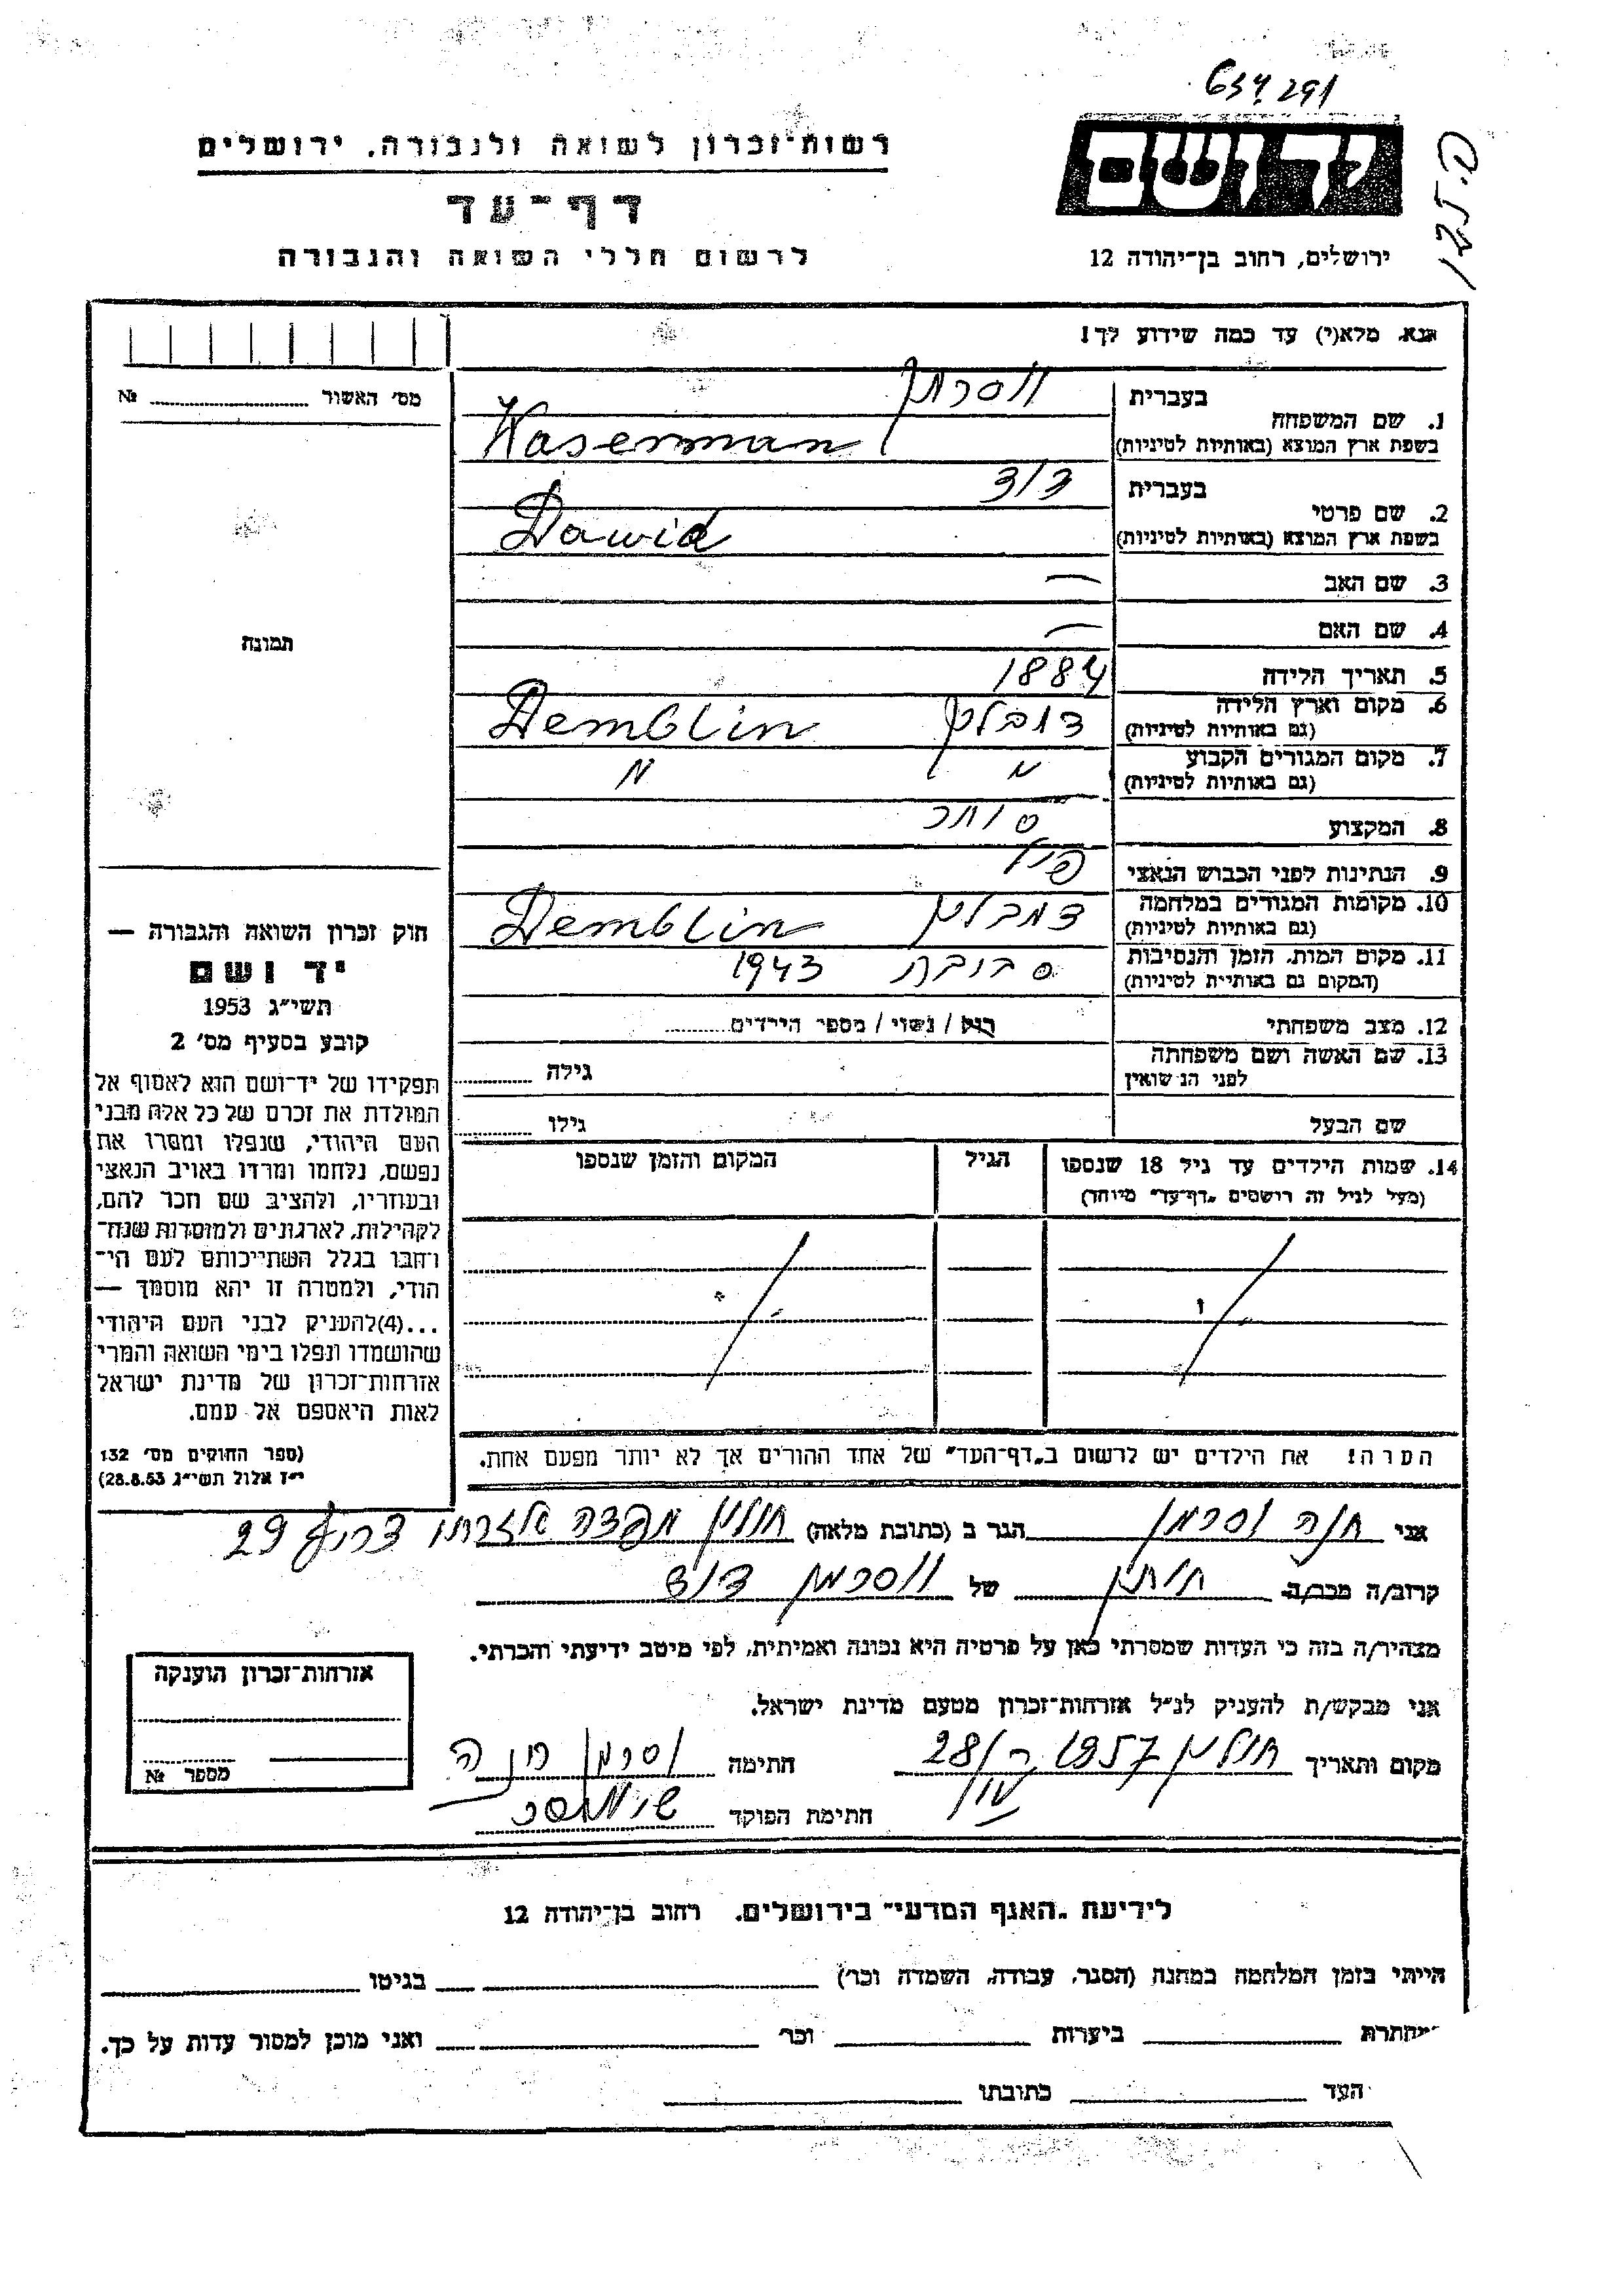 634291
רשות־זכרון לשואה ולגבורה, ירושלים
דף־עד
לרשום חללי השואה והגבורה
יד ושם
ירושלים, רחוב בן־יהודה 12
אנא, מלא(י) עד כמה שידוע לך!
מס׳ האשור № 
1. שם המשפחה
בעברית ווסרמן
בשפת ארץ המוצא (באותיות לטיניות) Waserman
2. שם פרטי
בעברית דוד
בשפת ארץ המוצא (באותיות לטיניות) Dawid
3. שם האב —
4. שם האם —
5. תאריך הלידה 1884
6. מקום וארץ הלידה (גם באותיות לטיניות) דמבלין Demblin
7. מקום המגורים הקבוע (גם באותיות לטיניות) " "
8. המקצוע סוחר
9. הנתינות לפני הכבוש הנאצי פול
10. מקומות המגורים במלחמה (גם באותיות לטיניות) דמבלין Demblin
11. מקום המות, הזמן והנסיבות (המקום גם באותיות לטיניות) סביבור 1943
12. מצב משפחתי רוק / נשוי / מספר הילדים
13. שם האשה ושם משפחתה לפני הנשואין גילה
שם הבעל גילו
14. שמות הילדים עד גיל 18 שנספו הגיל המקום והזמן שנספו
(מעל לגיל זה רושמים „דף־עד״ מיוחד)
הערה! את הילדים יש לרשום ב„דף־העד״ של אחד ההורים אך לא יותר מפעם אחת.
תמונה
חוק זכרון השואה והגבורה —
יד ושם
תשי״ג 1953
קובע בסעיף מס׳ 2
תפקידו של יד־ושם הוא לאסוף אל
המולדת את זכרם של כל אלה מבני
העם היהודי, שנפלו ומסרו את
נפשם, נלחמו ומרדו באויב הנאצי
ובעוזריו, ולהציב שם וזכר להם,
לקהילות, לארגונים ולמוסדות שנח־
רחבו בגלל השתייכותם לעם הי־
הודי, ולמטרה זו יהא מוסמך —
...(4)להעניק לבני העם היהודי
שהושמדו ונפלו בימי השואה והמרי
אזרחות־זכרון של מדינת ישראל
לאות היאספם אל עמם.
(ספר החוקים מס׳ 132
י״ז אלול תשי״ג 28.8.53)
אני חנה וסרמן הגר ב (כתובת מלאה) חולון 29
קרוב/ה מכר/ה חותן של ווסרמן דוד
מצהיר/ה בזה כי העדות שמסרתי כאן על פרטיה היא נכונה ואמיתית, לפי מיטב ידיעתי והכרתי.
אני מבקש/ת להעניק לנ״ל אזרחות־זכרון מטעם מדינת ישראל.
מקום ותאריך חולון 1957 28/ חתימה וסרמן חנה
חתימת הפוקד
אזרחות־זכרון הוענקה
מספר №
לידיעת „האגף המדעי״ בירושלים, רחוב בן־יהודה 12
הייתי בזמן המלחמה במחנה (הסגר, עבודה, השמדה וכו׳) בגיטו
במחתרת ביערות וכו׳ ואני מוכן למסור עדות על כך.
העד כתובתו